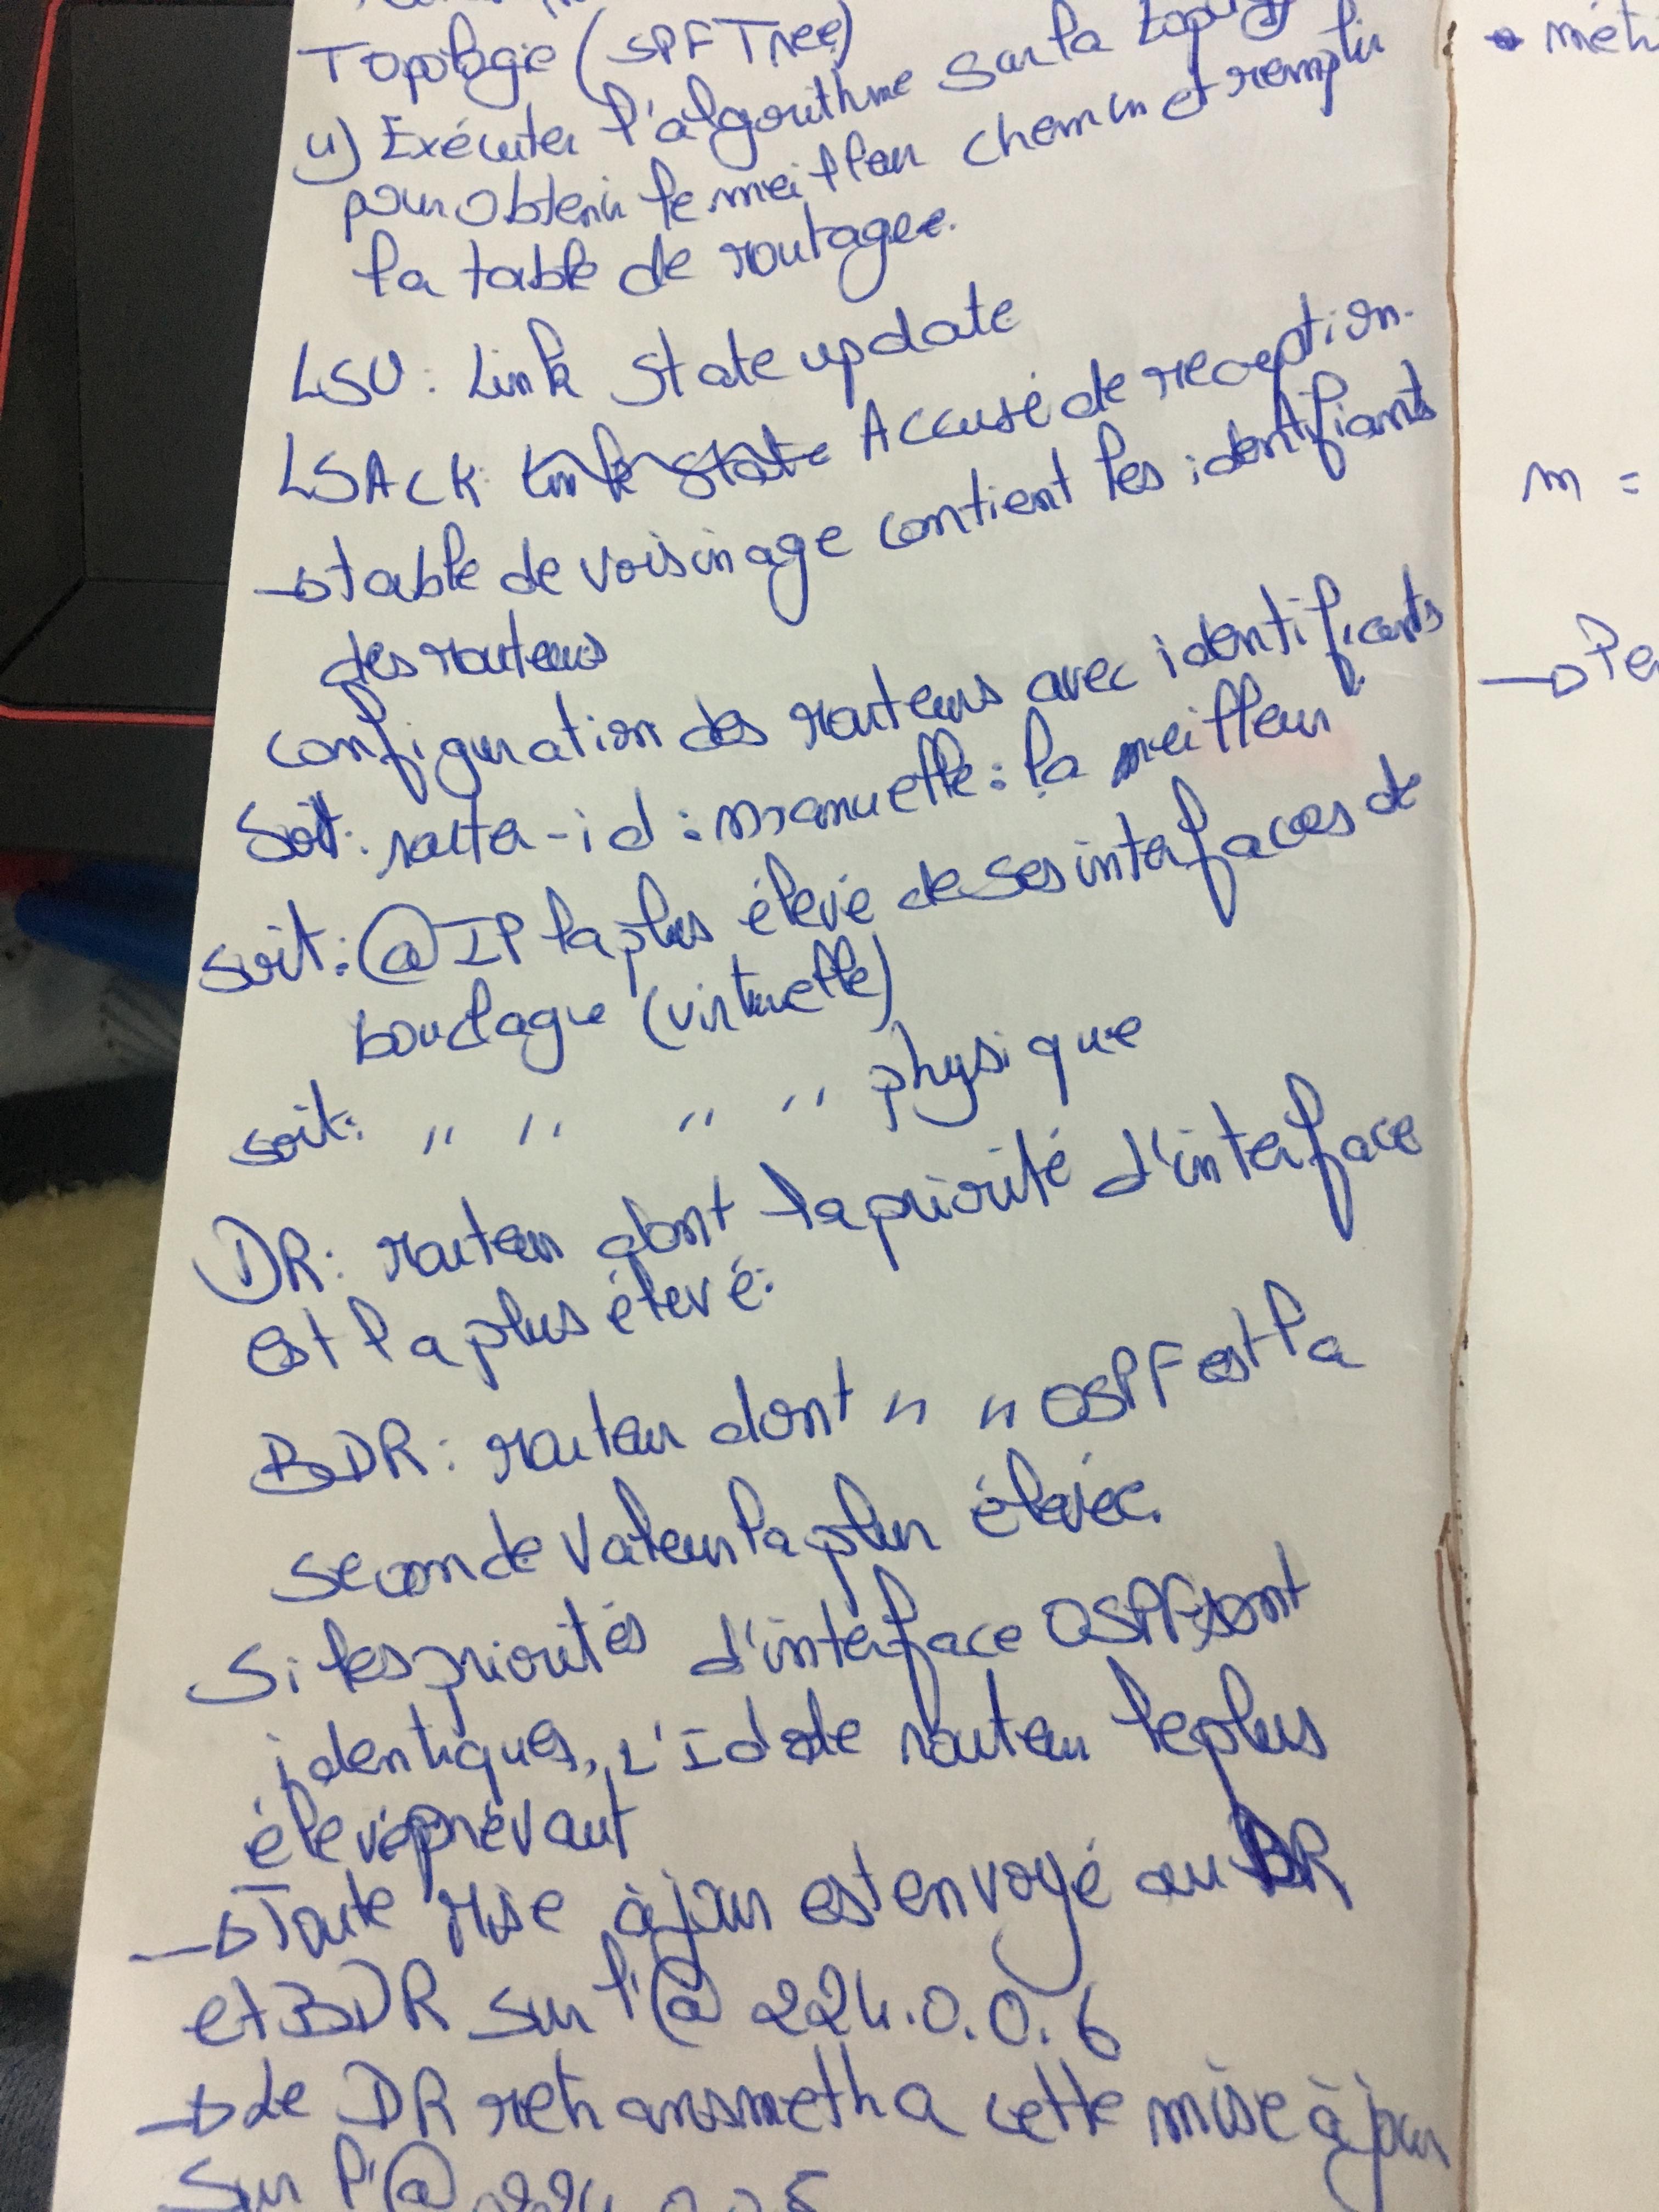 Topologie (SPF Tree)
4) Exécuter l'algorithme sur la
pour obtenir le meilleur chemin et remplir
la table de routage.
LSU : Link State update
LSACK : Link State Accusé de reception.
→ table de voisinage contient les identifiants
des routeurs
configuration des routeurs avec identificants
Soit : router-id : manuelle : la meilleur
soit : @IP la plus élevé de ses interfaces de
bouclague (virtuelle)
soit : " " " " physique
DR : routeur dont la priorité d'interface
est la plus élevé.
BDR : routeur dont " " OSPF est la
seconde valeur la plus élevée.
Si les priorités d'interface OSPF sont
identiques, L'Id de routeur le plus
élevé prévaut
→ Toute mise à jour est envoyé au DR
et BDR sur l'@ 224.0.0.6
→ Le DR retransmettra cette mise à jour
Sur l'@ 224.0.0.5
m =